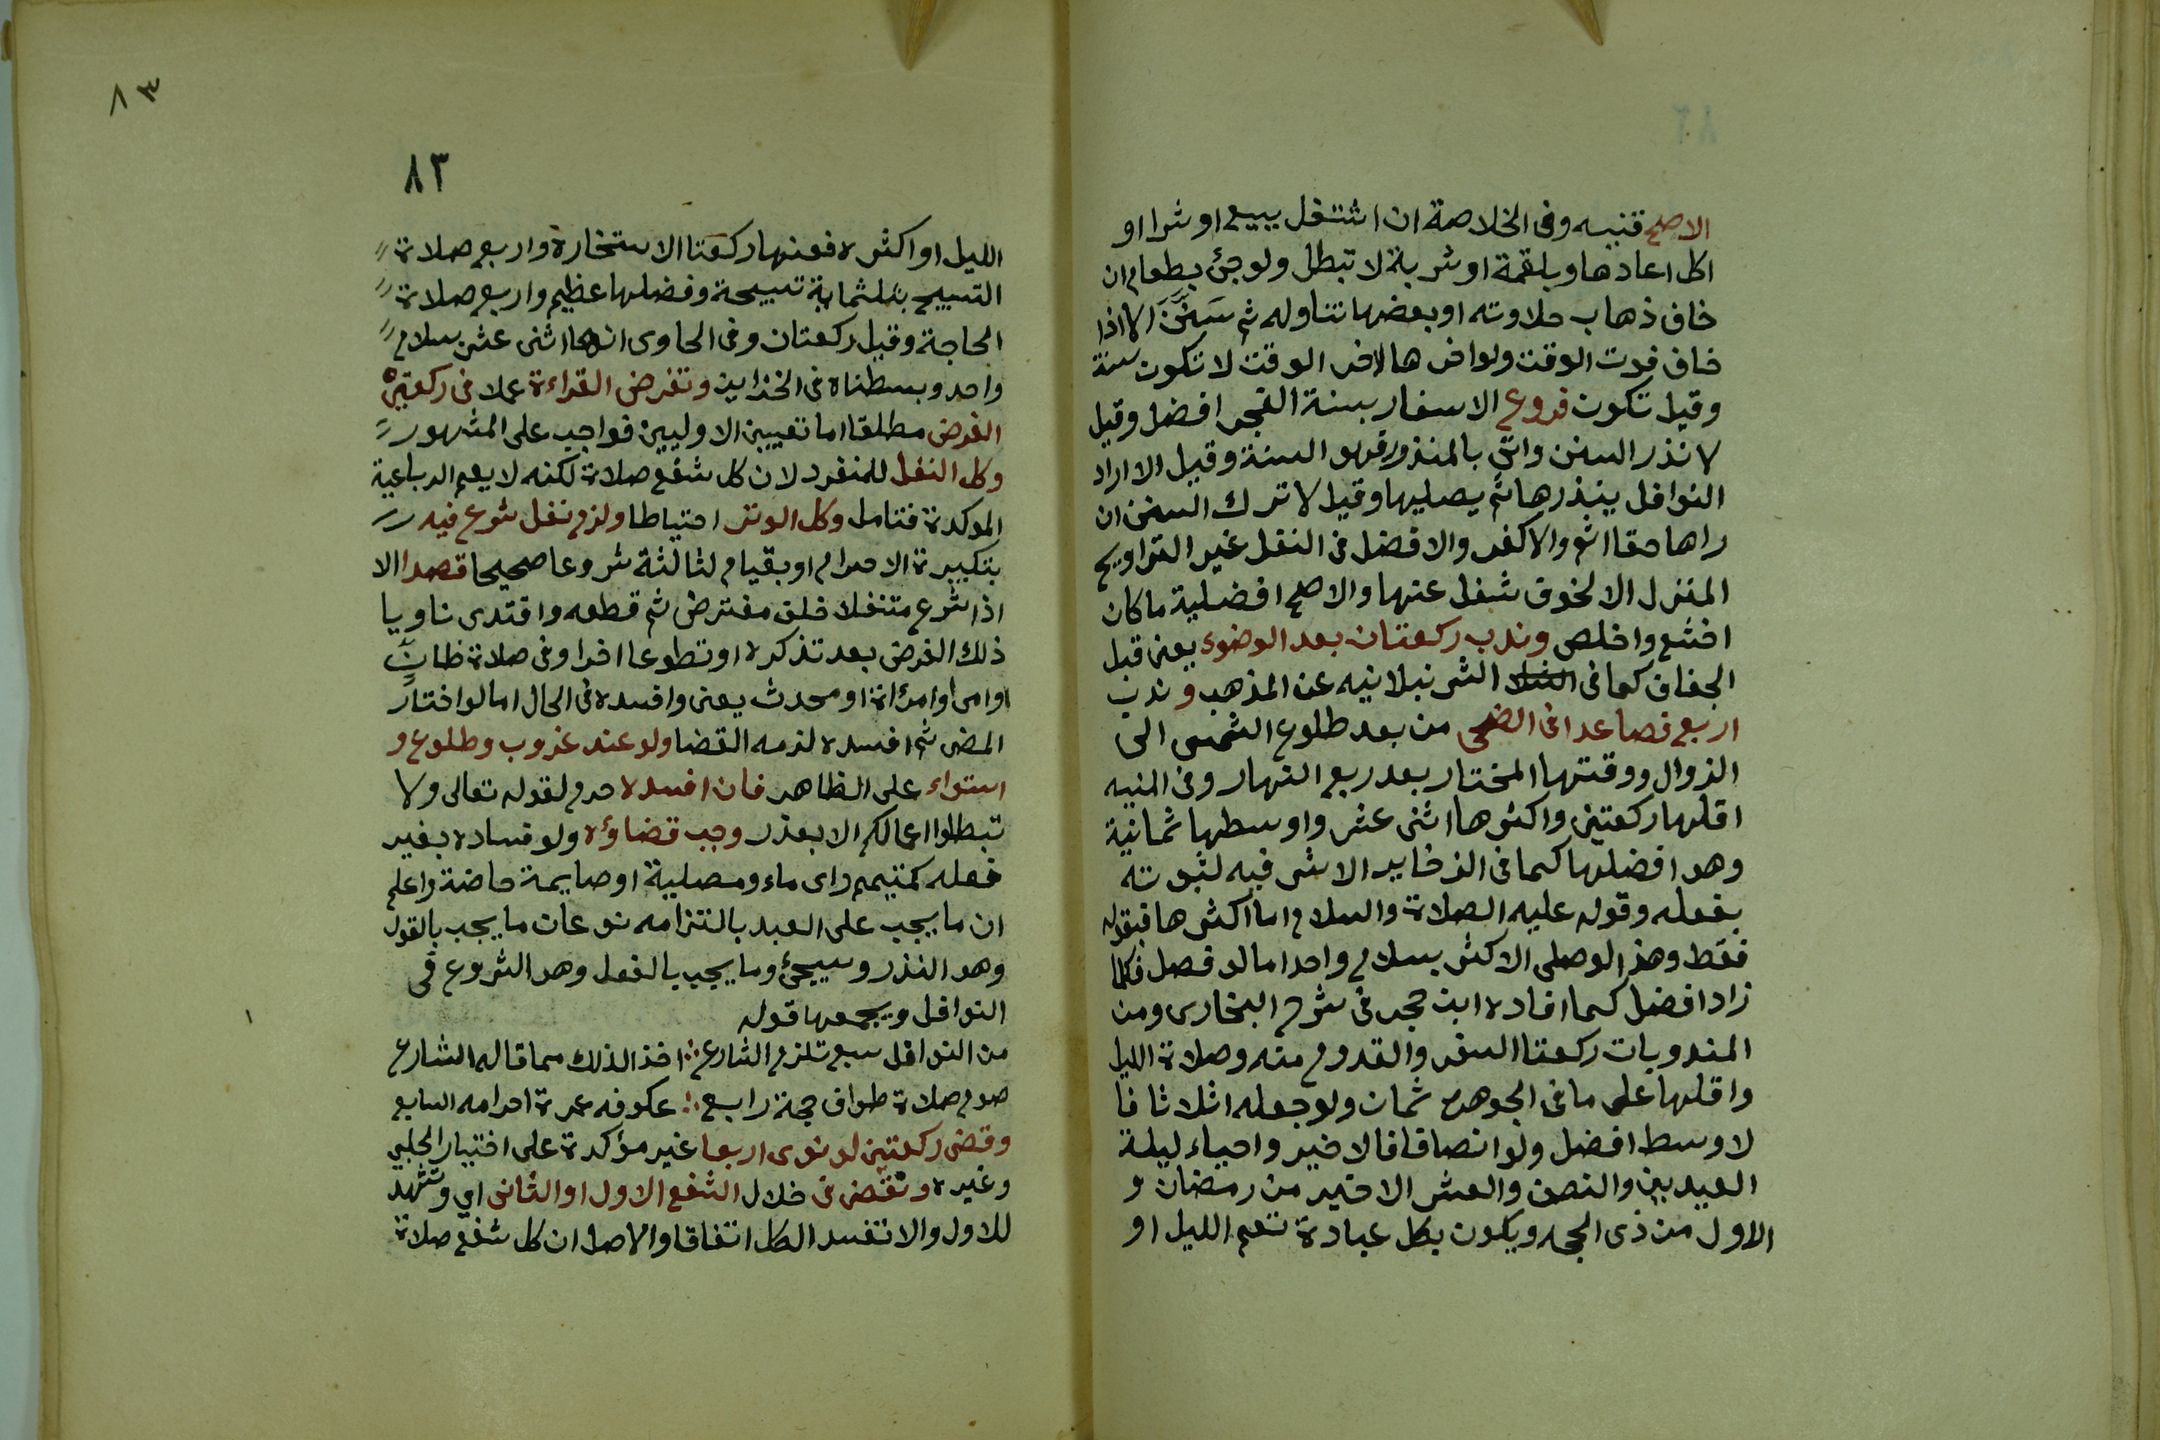 الاصح قنيه وفى الخلاصة ان اشتغل ببيع او شرا او
اكل اعادها وبلقمة او شربة لا تبطل ولو جئ بطعام ان
خاف ذهاب حلاوته او بعضها تناوله ثم سنن الا اذا
خاف فوت الوقت ولو اخرها لاخر الوقت لا تكون سنة
وقيل تكون فروع الاسفار بسنة الفجر افضل وقيل
لا نذر السنن واتى بالمنذور فهو السنة وقيل الا اراد
النوافل ينذرها ثم يصليها وقيل لا ترك السنن ان
راها حقا اثم والا كفر والافضل فى النفل غير التراويح
المنزل الا لخوف شغل عنها والاصح افضلية ما كان
اخشع واخلص وندب ركعتان بعد الوضوء يعنى قبل
الجفاف كما فى الشرنبلانيه عن المذهب وندب
اربع فصاعدا فى الضحى من بعد طلوع الشمس الى
الزوال ووقتها المختار بعد ربع النهار وفى المنيه
اقلها ركعتين واكثرها اثنى عشر واوسطها ثمانية
وهو افضلها كما فى الذخاير الاشرفيه لثبوته
بفعله وقوله عليه الصلاة والسلام اما اكثرها فبقوله
فقط وهذا لو صلى الاكثر بسلام واحد اما لو فصل فكلما
زاد افضل كما افاده ابن حجر فى شرح البخارى ومن
المندوبات ركعتا السفر والقدوم منه وصلاة الليل
واقلها على ما فى الجوهرة ثمان ولو جعله اثلاثا فا
لاوسط افضل ولو انصافا فالاخير واحياء ليلة
العيدين والنصف والعشر الاخير من رمضان و
الاول من ذى الحجه ويكون بكل عبادة تعم الليل او
٨٣
٨٣
الليل او اكثره فمنها ركعتا الاستخارة واربع صلاة
التسبيح بثلثماية تسبيحة وفضلها عظيم واربع صلاة
الحاجة وقيل ركعتان وفى الحاوى انها اثنى عشر بسلام
واحد وبسطناه فى الخزاين وتفرض القراءة عملا فى ركعتى
الفرض مطلقا اما تعيين الاوليين فواجب على المشهور
وكل النفل للمنفرد لان كل شفع صلاة لكنه لا يعم الرباعية
الموكدة فتامل وكل الوتر احتياطا ولزم نفل شرع فيه
بتكبيرة الاحرام او بقيام لثالثة شروعا صحيحا قصدا الا
اذا شرع متنفلا خلف مفترض ثم قطعه واقتدى ناويا
ذلك الفرض بعد تذكره او تطوعا اخر او فى صلاة ظان
او امى او امراة او محدث يعنى وافسده فى الحال اما لو اختار
المضى ثم افسده لزمه القضا ولو عند غروب وطلوع و
استواء على الظاهر فان افسده حرم لقوله تعالى ولا
تبطلوا اعمالكم الا بعذر وجب قضاؤه ولو فساده بغير
فعله كمتيمم راى ماء ومصلية او صايمة حاضة واعلم
ان ما يجب على العبد بالتزامه نوعان ما يجب بالقول
وهو النذر وسيجئ وما يجب بالفعل وهو الشروع فى
النوافل ويجمعها قوله
من النوافل سبع تلزم الشارع ∴ اخذا لذلك مما قاله الشارع
صوم صلاة طواف حجة رابع ∴ عكوفه عمرة احرامه السابع
وقضى ركعتين لو نوى اربعا غير مؤكدة على اختيار الحلبى
وغيره ونقض فى خلال الشفع الاول او الثانى اي وتشهد
للاول والا تفسد الكل اتفاقا والاصل ان كل شفع صلاة